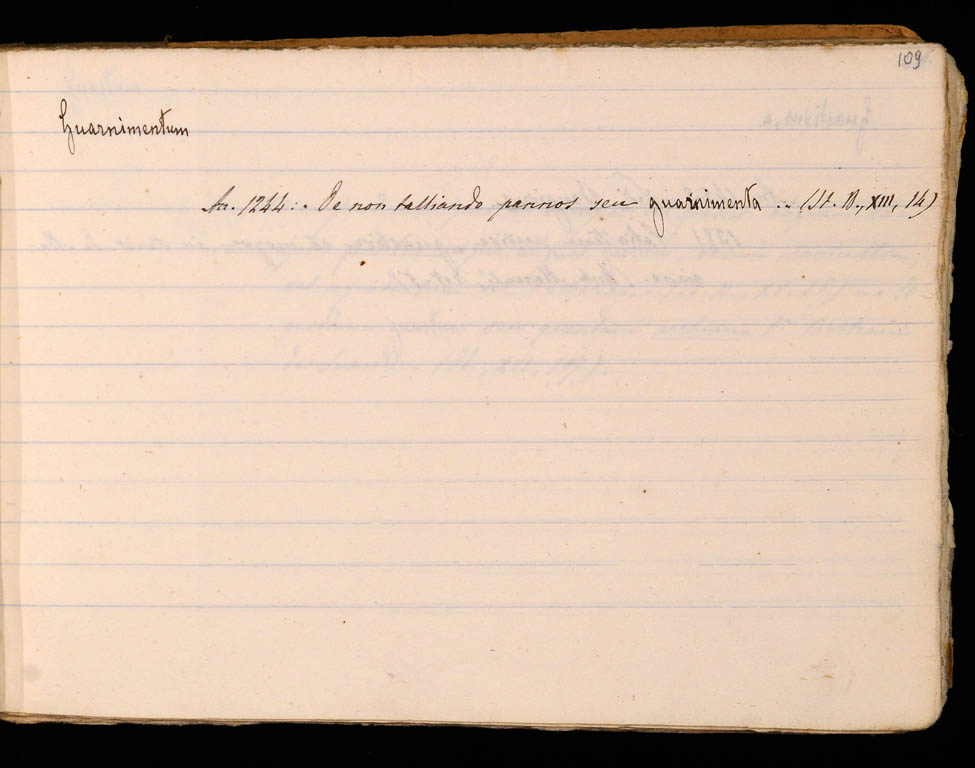 109
Guarnimentum
An. 1244: - De non talliando pannos seu guarnimenta .. (St. B., XIII, 14)